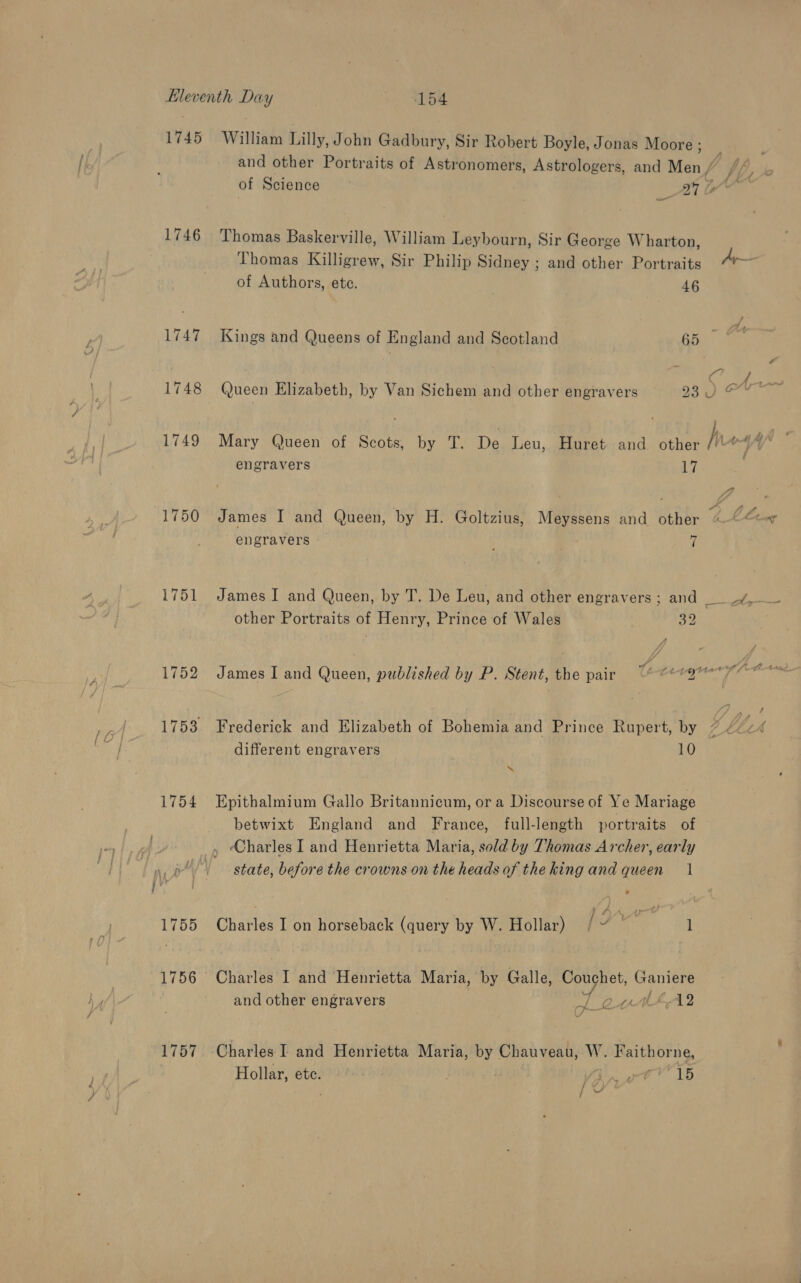 Eleventh Day 154
1745 William Lilly, John Gadbury, Sir Robert Boyle, Jonas Moore ;
and other Portraits of Astronomers, Astrologers, and Men
of Science 27
1746 Thomas Baskerville, William Leybourn, Sir George Wharton,
Thomas Killigrew, Sir Philip Sidney ; and other Portraits
of Authors, etc. 46
1747 Kings and Queens of England and Scotland 65
1748 Queen Elizabeth, by Van Sichem and other engravers 23
1749 Mary Queen of Scots, by T. De Leu, Huret and other
engravers 17
1750 James I and Queen, by H. Goltzius, Meyssens and other
engravers 7
1751 James I and Queen, by T. De Leu, and other engravers ; and
other Portraits of Henry, Prince of Wales 32
1752 James I and Queen, published by P. Stent, the pair
1753 Frederick and Elizabeth of Bohemia and Prince Rupert, by
different engravers 10
1754 Epithalmium Gallo Britannicum, or a Discourse of Ye Mariage
betwixt England and France, full-length portraits of
Charles I and Henrietta Maria, sold by Thomas Archer, early
state, before the crowns on the heads of the king and queen 1
1755 Charles I on horseback (query by W. Hollar) 1
1756 Charles I and Henrietta Maria, by Galle, Couchet, Ganiere
and other engravers 12
1757 Charles I and Henrietta Maria, by Chauveau, W. Faithorne,
Hollar, etc. 15